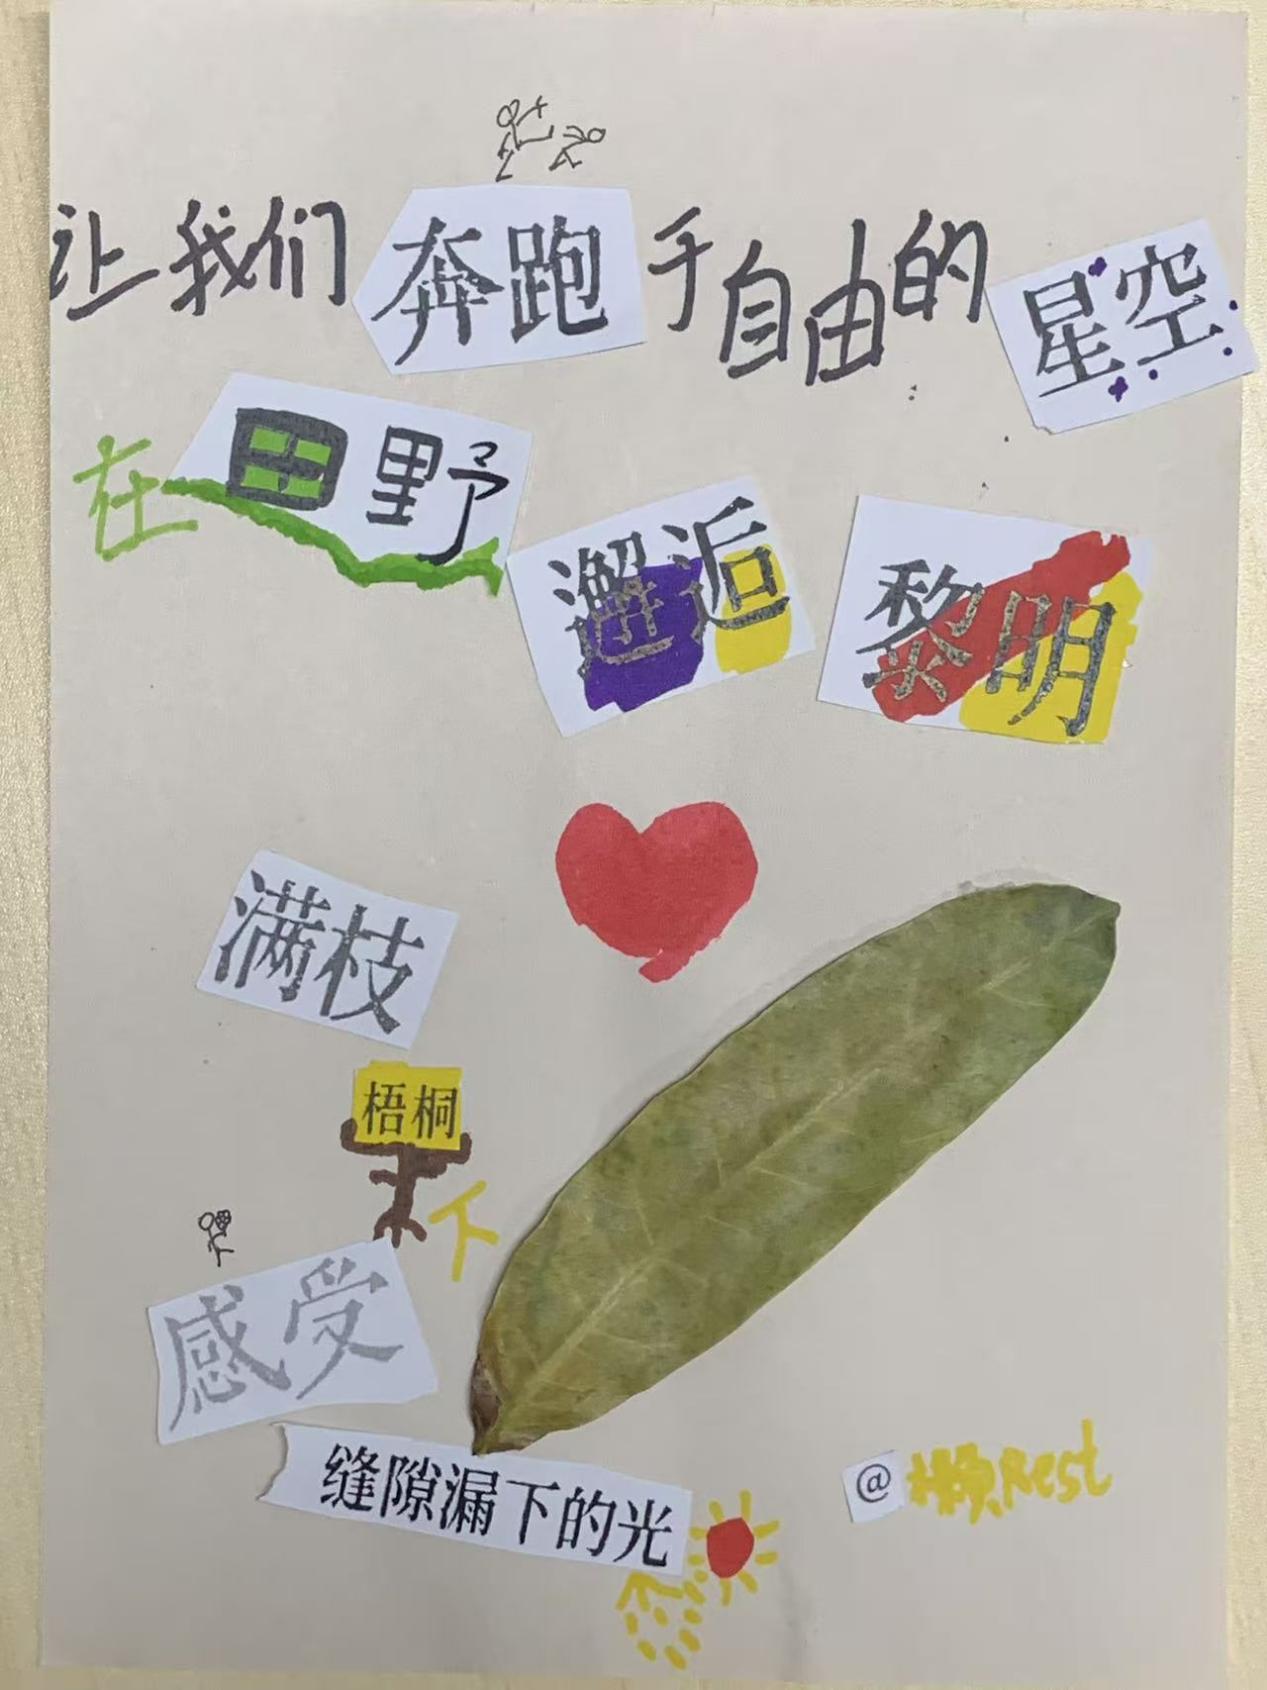 让我们奔跑于自由的星空
在田野邂逅黎明
满枝
梧桐下
感受
缝隙漏下的光
@ Rest